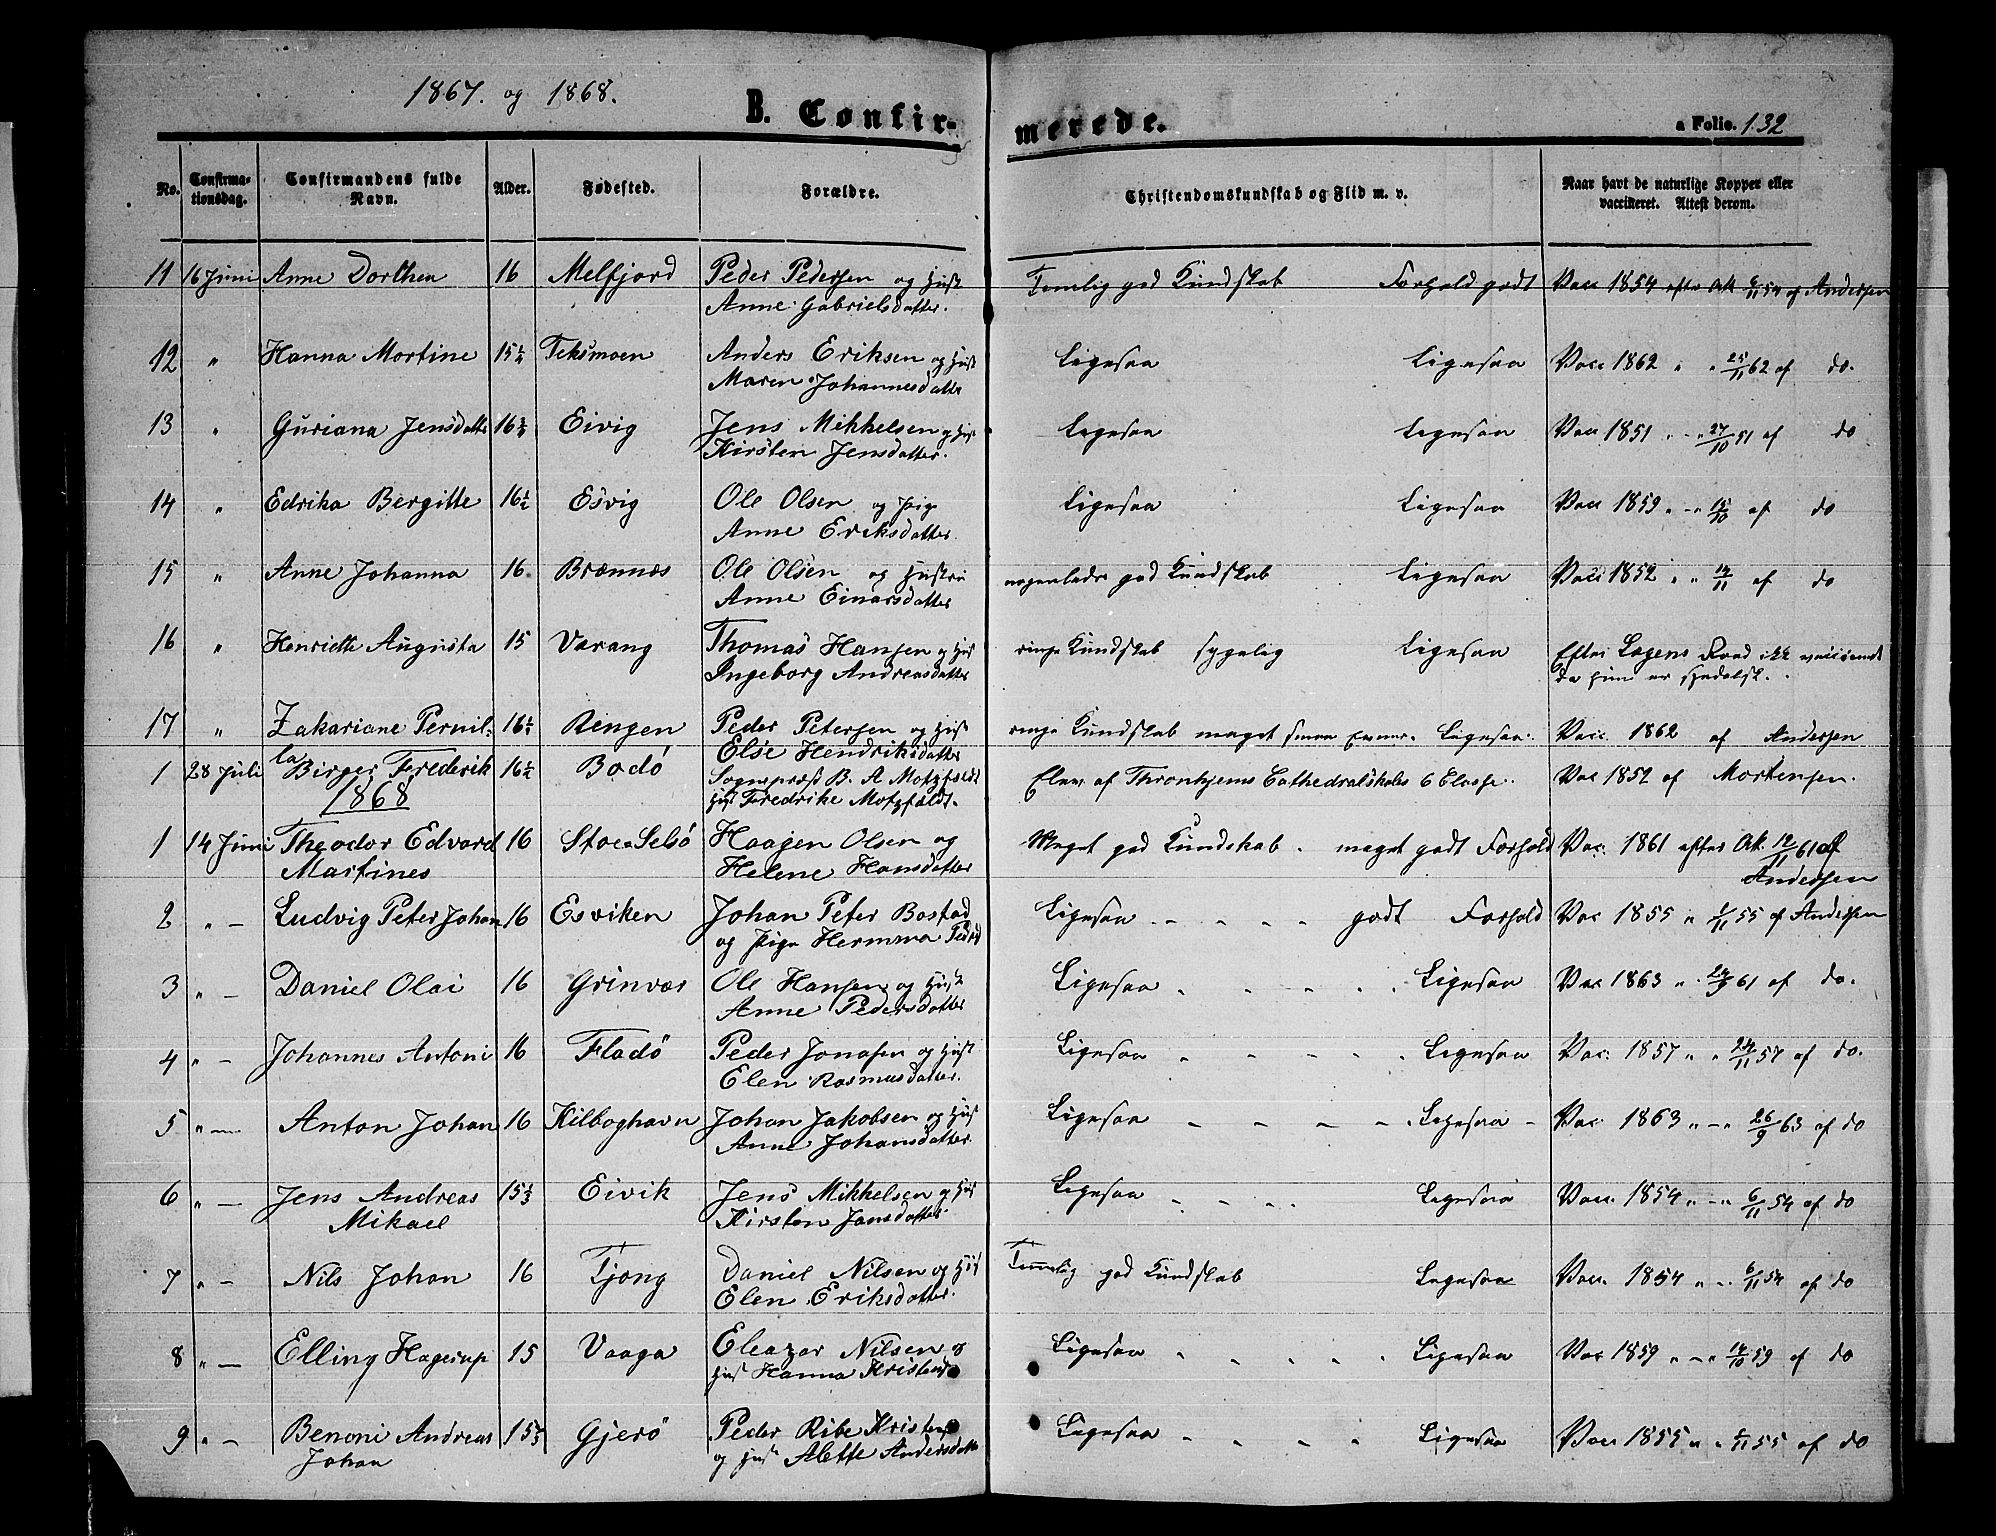 1867. og 1868.
B. Confirmerede.
a Folio. 132
No. Confirmationsdag. Confirmandens fulde Navn. Alder. Fødested. Forældre. Christendomskundskab og Flid m. v. Naar havt de naturlige Kopper eller vaccineret. Attest derom.
11 16 Juni Anne Dorthea 16 Melfjord Peder Pedersen og Hust Temlig god Kundskab Forhold godt Vacc 1854 efter Att 6/11 54 af Andersen
Anne Gabrielsdatter.
12 " Hanna Martine 15 1/4 Teksmoen Anders Eriksen og Hust Ligesaa Ligesaa Vacc 1862 " " 25/11 62 af do.
Maren Johannesdatter
13 " Guriana Jensdatter 16 3/4 Eivig Jens Mikkelsen og Hust Ligesaa Ligesaa Vacc 1851 " - " 27/10 51 af do
Kirsten Jensdatter.
14 " Edrika Bergitte 16 1/2 Esvig Ole Olsen og Pige Ligesaa Ligesaa Vacc 1859 " - " 15/10 af do
Anne Eriksdatter.
15 " Anne Johanna 16 Brænnæs Ole Olsen og Hustru nogenledes god Kundskab Ligesaa Vacc 1852 " " 14/11 af do
Anne Einarsdatter
16 " Henriette Augusta 15 Værang Thomas Hansen og Hust ringe Kundskab sygelig Ligesaa Efter Lægens Raad ikke vaccineret
Ingeborg Andreasdatter da hun er spedalsk.
17 " Zakariane Pernil- 16 1/2 Ringen Peder Petersen og Hust ringe Kundskab meget smaa Evner. Ligesaa. Vacc. 1862 af Andersen
la Else Hendriksdatter
1 28 Juli Birger Frederik 16 1/2 Bodö Sognepræst B. A Motzfeldt Elev af Thronhjems Cathedralskoles 6 Classe. Vac 1852 af Mortensen.
Hust Fredrike Motzfeldt.
1868
1 14 Juni Theodor Edvard 16 Stoe Selsö Haagen Olsen og Meget god Kundskab. meget godt Forhold Vac. 1861 efter Att. 12/11 61 af
Martines Helene Hansdatter Andersen
2 " - Ludvig Peter Johan 16 Esviken Johan Peter Bostad Ligesaa - - - - godt Forhold Vac 1855 " 6/11 55 af Andersen
og Pige Hermma
3 " - Daniel Olai 16 Grinvær Ole Hansen og Hust Ligesaa - - - - Ligesaa Vac 1863 " 24/9 61 af do.
Anne Pedersdatter
4 " - Johannes Antoni 16 Fladö Peder Jonasen og Hust Ligesaa - - - - Ligesaa Vac. 1857 " " 24/11 57 af do.
Elen Rasmusdatter.
5 " - Anton Johan 16 Kilboghavn Johan Jakobsen og Hust Ligesaa - - - - Ligesaa - Vac 1863 " - " 26/9 63 af do
Anne Johansdatter
6 " - Jens Andreas 15 1/2 Eivik Jens Mikkelsen og Hust Ligesaa - - - - Ligesaa Vacc. 1854 " - " 6/11 54 af do
Mikael Kirsten Jansdatter.
7 " - Nils Johan 16 Tjong Daniel Nilsen og Hust Temlig god Kundskab Ligesaa Vacc. 1854 " - " 6/11 54 af do
Elen Eriksdatter.
8 " - Elling Hagerup 15 Vaaga Eleazar Nilsen og Ligesaa - - - - Ligesaa Vac 1859 " - " 14/10 59 af do
Hust Hanna
9 " - Benoni Andreas 15 Gjerö Peder Ribe Ligesaa - - - - Ligesaa Vacc 1855 " " 6/11 55 af do
Johan og Hust Alette Andersdatter